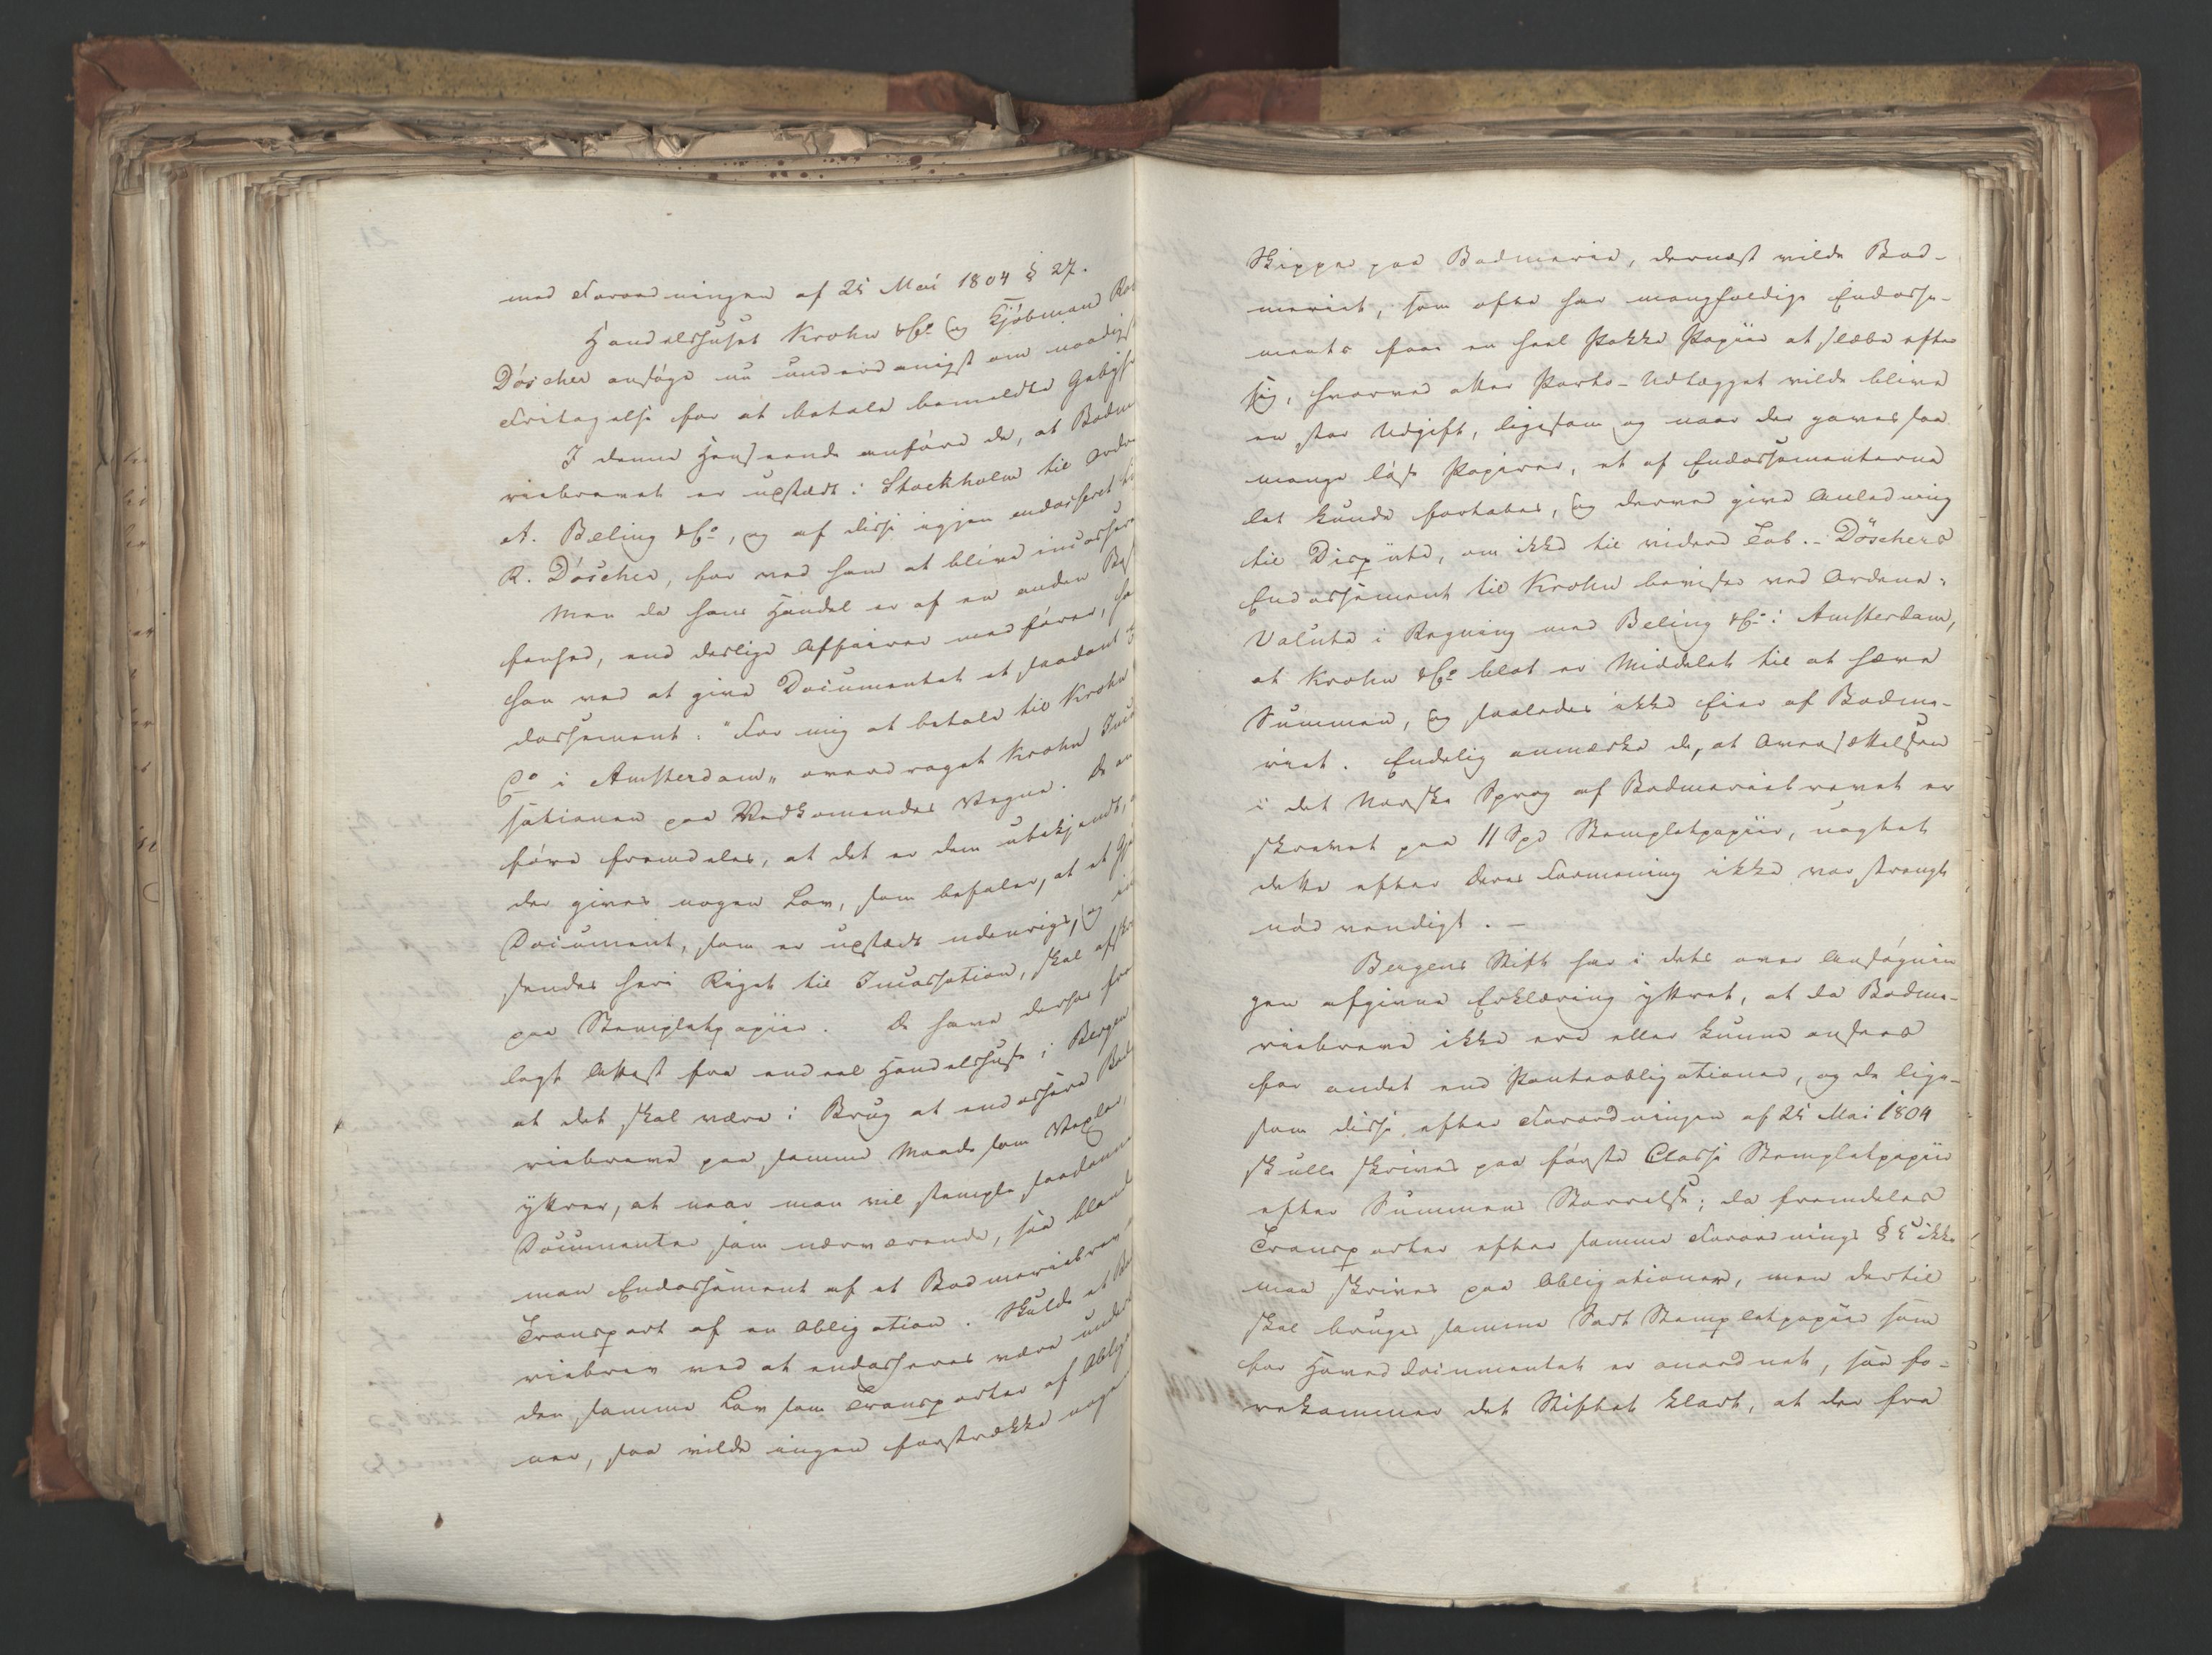 med Forordningen af 25 Mai 1804 § 27.
Handelshuset Krohn & Co og Kjöbmand
Döscher ansöge nu underdanigst om naadigst
Fritagelse for at betale bemeldte Gebyhr
I denne Henseende anföre de, at Bodme
riebrevet er udstædt i Stockholm til Ordre
A. Beling & Co, og af disse igjen endosseret til
R. Döscher, for ved ham at blive incasseret
Men da hans Handel er af en anden Bes
kenhed, end deslige Affairer medförer, har
han ved at give Documentet et saadant
dossement: "For mig at betale til Krohn
Co i Amsterdam" overdraget Krohn Incas
sationen paa Vedkomendes Vegne. De an
före fremdeles, at det er dem ubekjendt,
der gives nogen Lov, som befaler, at et
Document, som er udstædt udenrigs, og
sendes heri Riget til Incassation, skal
paa Stempletpapiir. De have derhos frem
lagt Attest fra endeel Handelshuse i Bergen
at det skal være i Brug at endossere Bod
riebreve paa samme Maade som Vexler,
yttrer, at naar man vil stemple saadanne
Documenter som nærværende, saa bland
man Endossement af et Bodmeriebrev
Transport af en Obligation. Skulde et Bod
riebrev ved at endosseres være under
den samme Lov som Transporter af Oblig
ner, saa vilde ingen forstrække nogen
Skipper paa Bodmerie, dernæst vilde Bod-
meriet, som ofte har mangfoldige Endosse-
ments faae en heel Pakke Papiir at slæbe efter
sig, hvorved atter Porto-Udlægget vilde blive
en stor Udgift, ligesom og naar der gaves saa
mange löse Papirer, et af Endossementerne
let kunde fortabes, og derved give Anledning
til Dispüte, om ikke til videre Tab. - Döschers
Endossement til Krohn beviser ved Ordene:
Valuta i Regning med Beling & Co i Amsterdam,
at Krohn & Co blot er Middelet til at hæve
Summen, og saaledes ikke Eier af Bodme-
riet. Endelig anmærke de, at Oversættelsen
i det Norske Sprog af Bodmeriebrevet er
skrevet paa 11 Spd Stempletpapiir, uagtet
dette efter deres Formening ikke var strengt
nödvendigt. -
Bergens Stift har i dets over Ansögnin
gen afgivne Erklæring yttret, at da Bodme-
riebreve ikke ere eller kunne ansees
for andet end Panteobligationer, og da lige-
som disse efter Forordningen af 25 Mai 1804
skulle skrives paa förste Classe Stempletpapiir
efter Summens Störrelse; da fremdeles
Transporter efter samme Forordnings § 5 ikke
maa skrives paa Obligationen, men dertil
skal bruges samme Sort Stempletpapiir som
for Hoved Documentet er anordnet, saa fo-
rekommer det Stiftet klart, at der fra